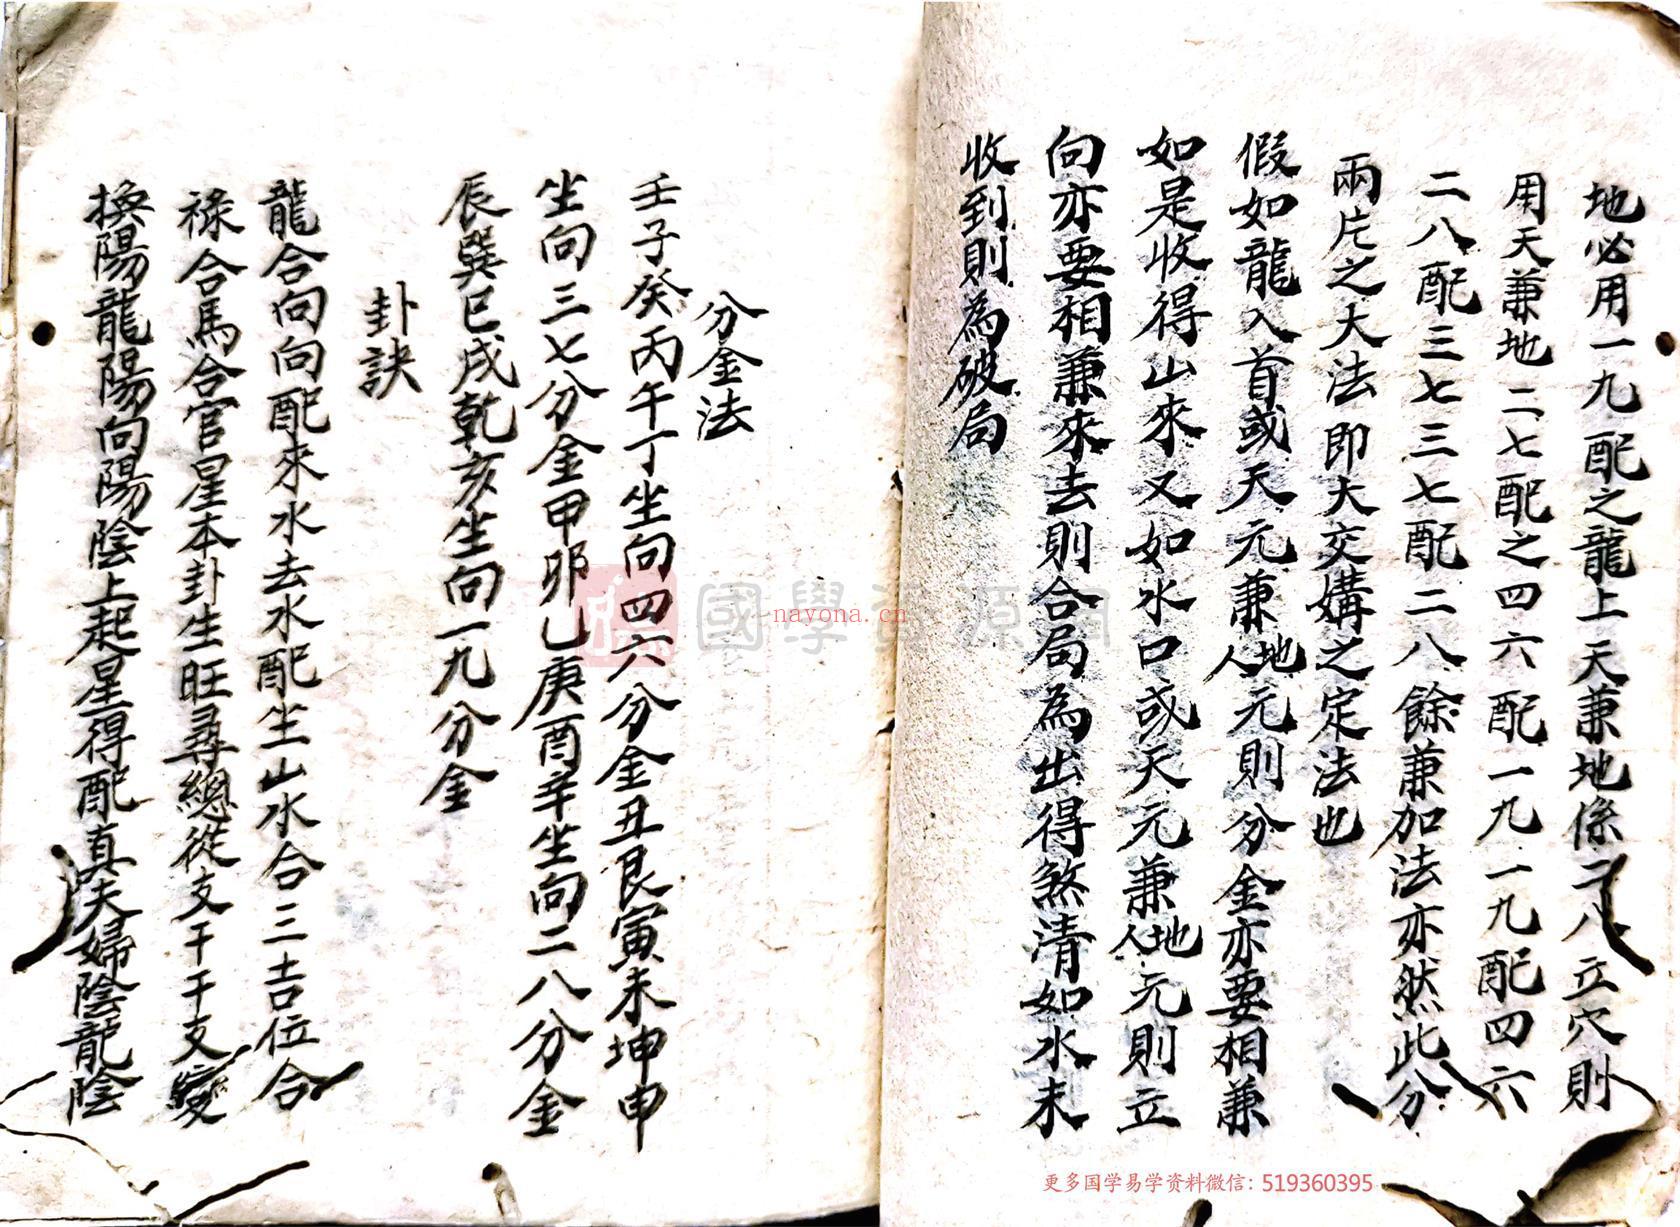 地必用一九配之龍上天兼地係二八立穴則
用天兼地二七配之四六配一九一九配四六
二八配三七三七配二八餘兼加法亦然此分
兩片之大法即大交媾之定法也
假如龍入首或天元兼地人元則分金亦要相兼
如是收得山來又如水口或天元兼地人元則立
向亦要相兼來去則合局為出得煞清如水未
收到則為破局
分金法
壬子癸丙午丁坐向四六分金丑艮寅未坤申
坐向三七分金甲卯乙庚酉辛坐向二八分金
辰巽巳戌乾亥坐向一九分金
卦訣
龍合向向配來水去水配坐山水合三吉位合
祿合馬合官星本卦生旺尋總從支干干支變
換陽龍陽向陽陰上起星得配真夫婦陰龍陰
國學資源網
nayona.cn
更多国学易学资料微信：519360395